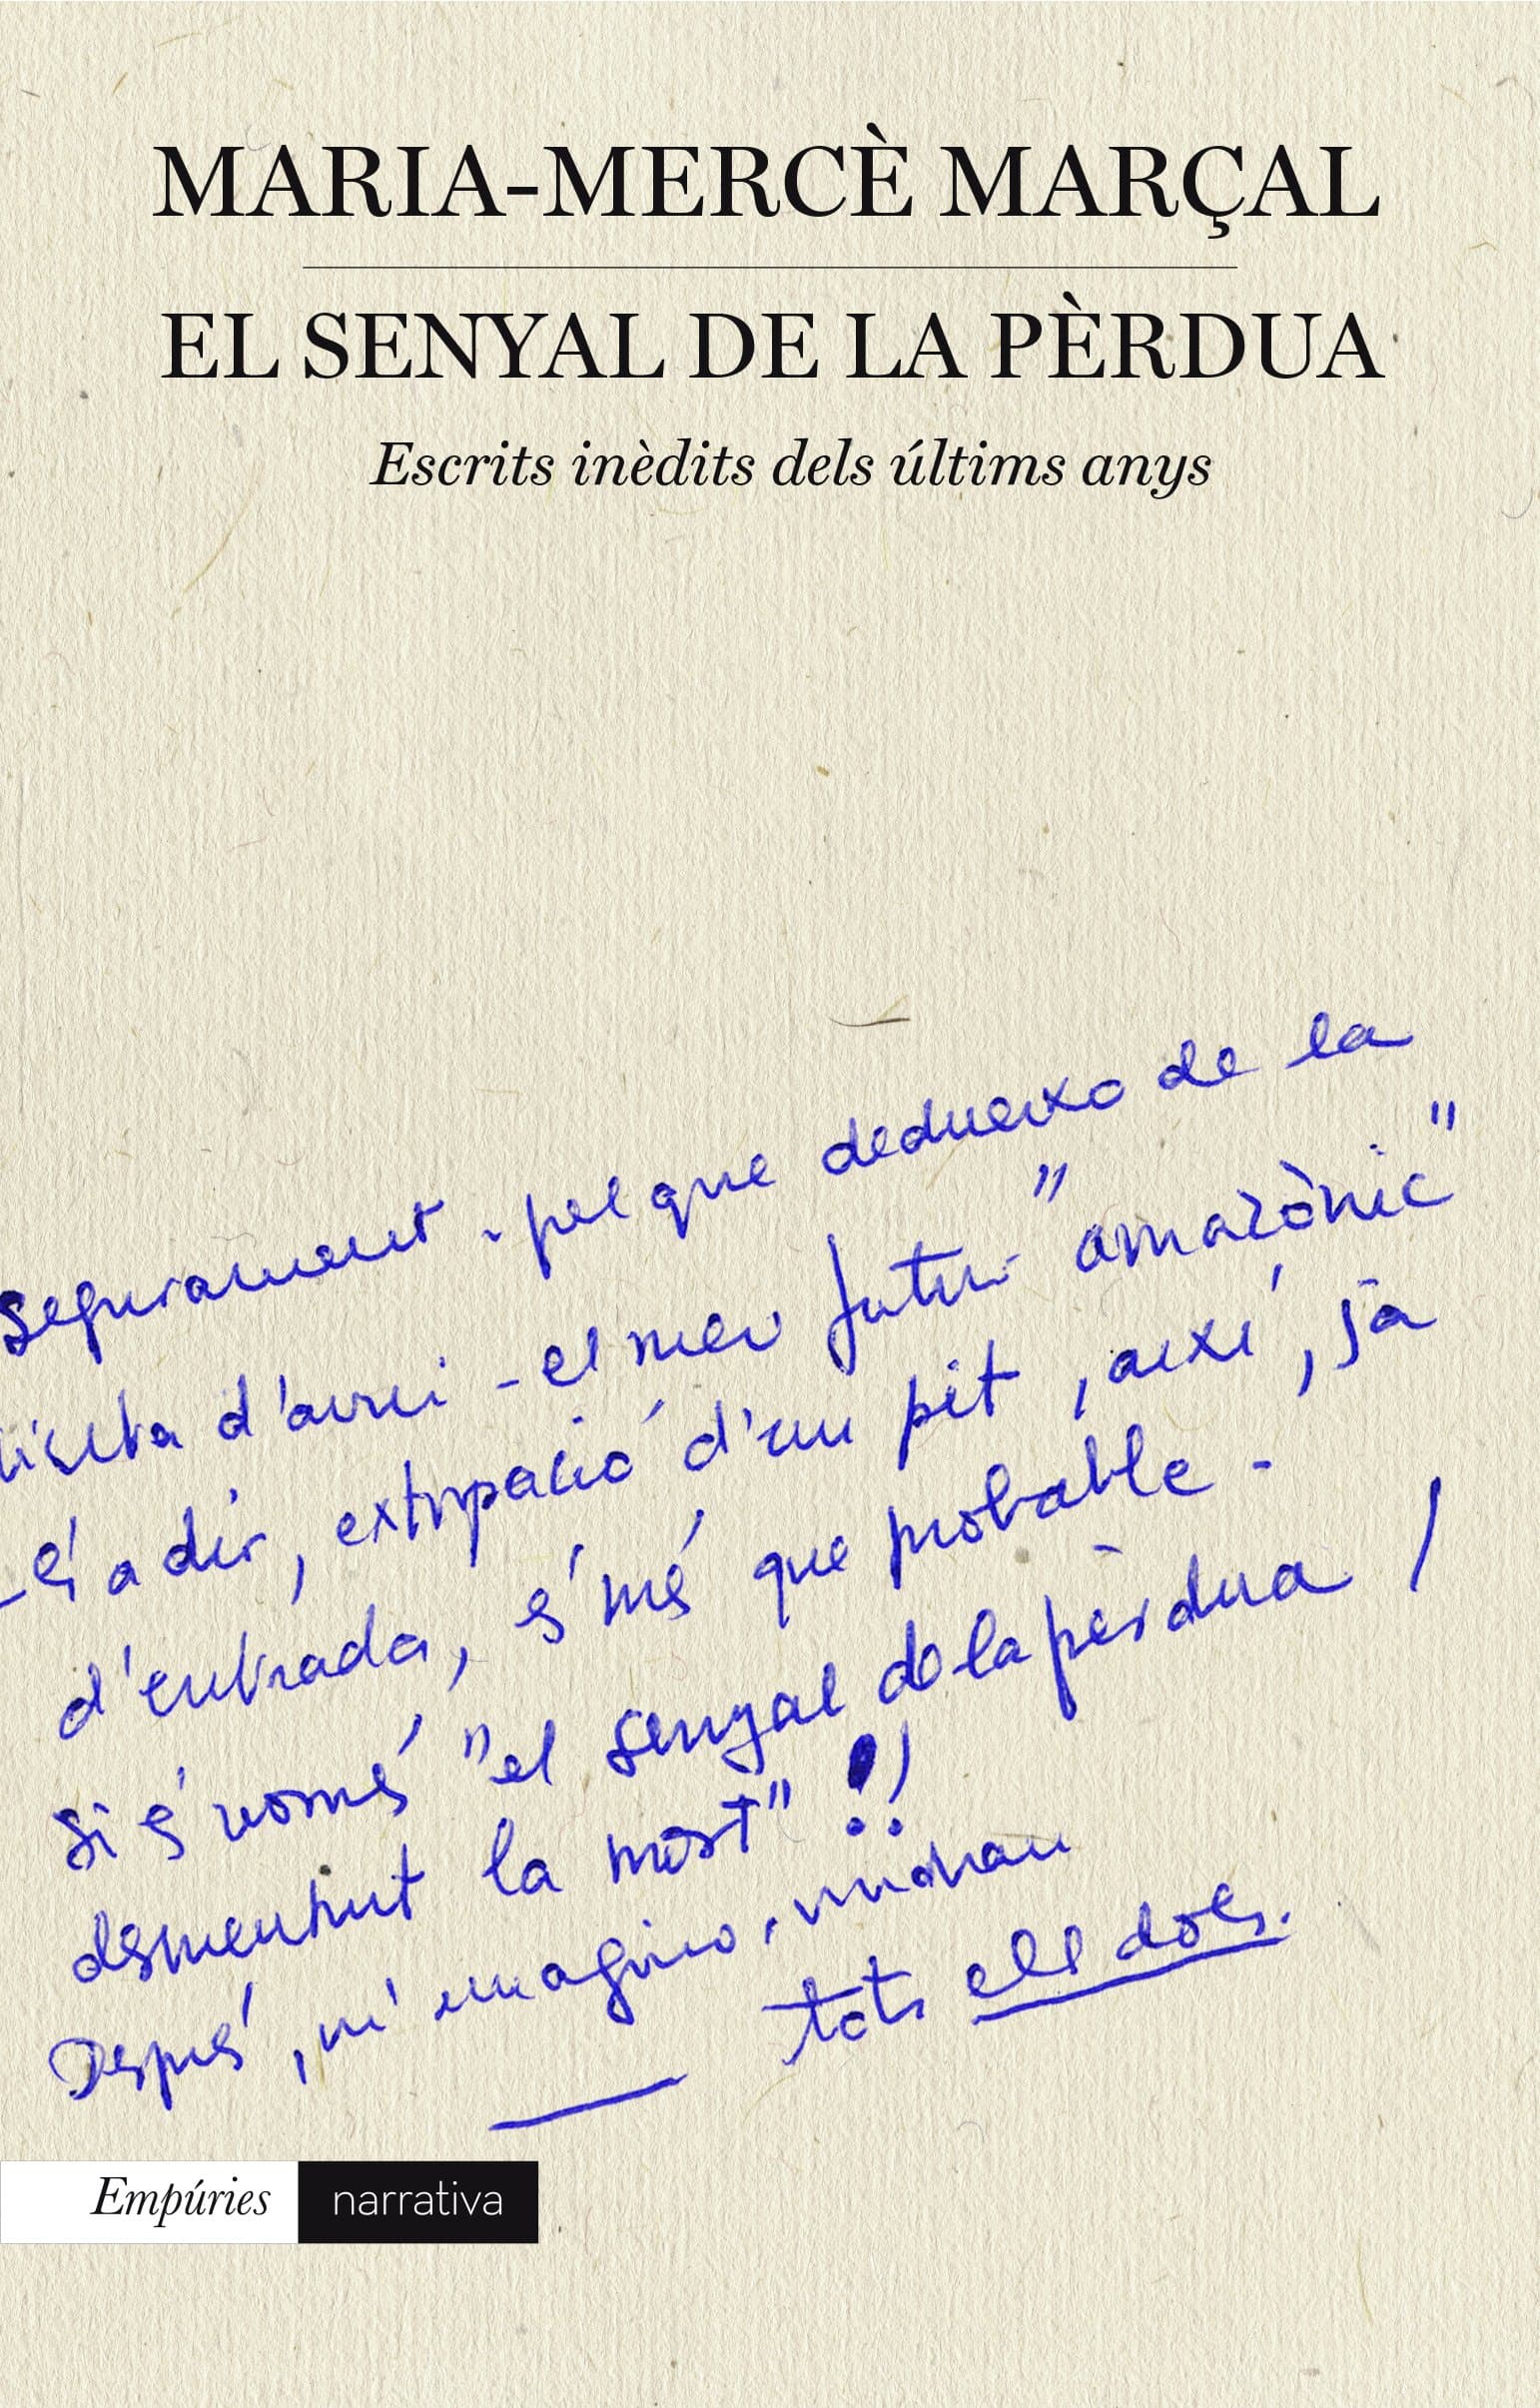 MARIA-MERCÈ MARÇAL
EL SENYAL DE LA PÈRDUA
Escrits inèdits dels últims anys
Segurament - pel que dedueixo de la
visita d'avui - el meu futur "amazònic"
- és a dir, extirpació d'un pit, així, ja
d'entrada, és més que probable -
Si és només "el senyal de la pèrdua /
desmentint la mort" !!
Després, m'imagino, vindran
tots els dols.
Empúries narrativa